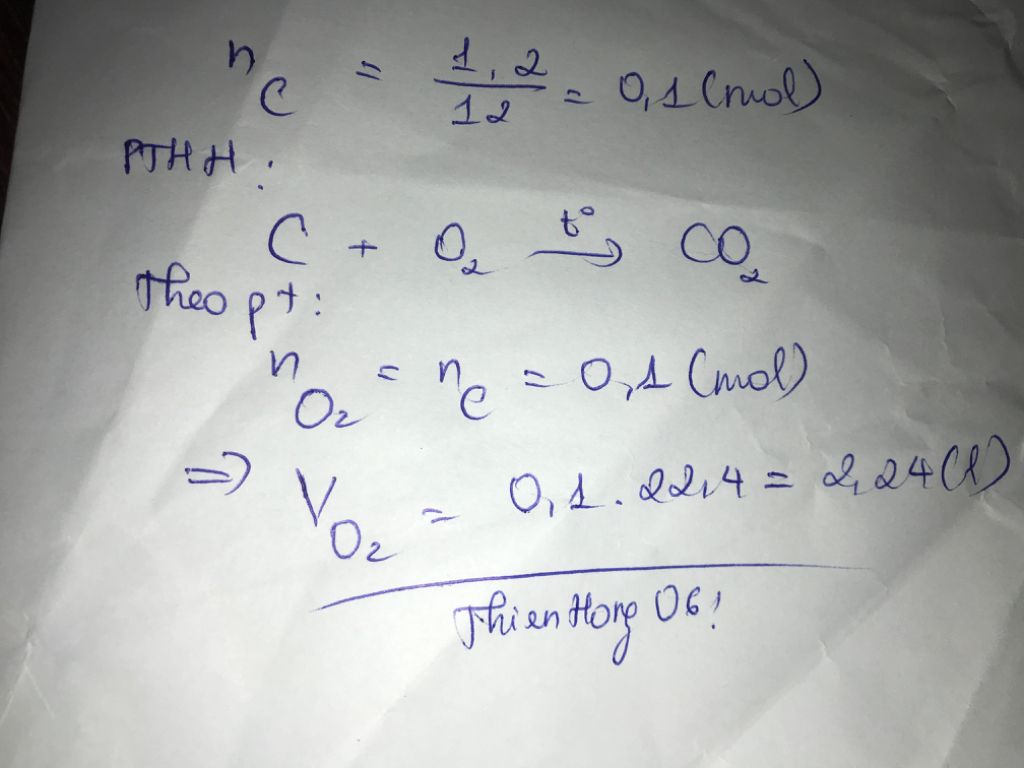 n_C = 1,2/12 = 0,1 (mol)
PTHH:
C + O₂ →(t°) CO₂
Theo pt:
n_O₂ = n_C = 0,1 (mol)
=> V_O₂ = 0,1 . 22,4 = 2,24 (l)
Thien Hong 06!